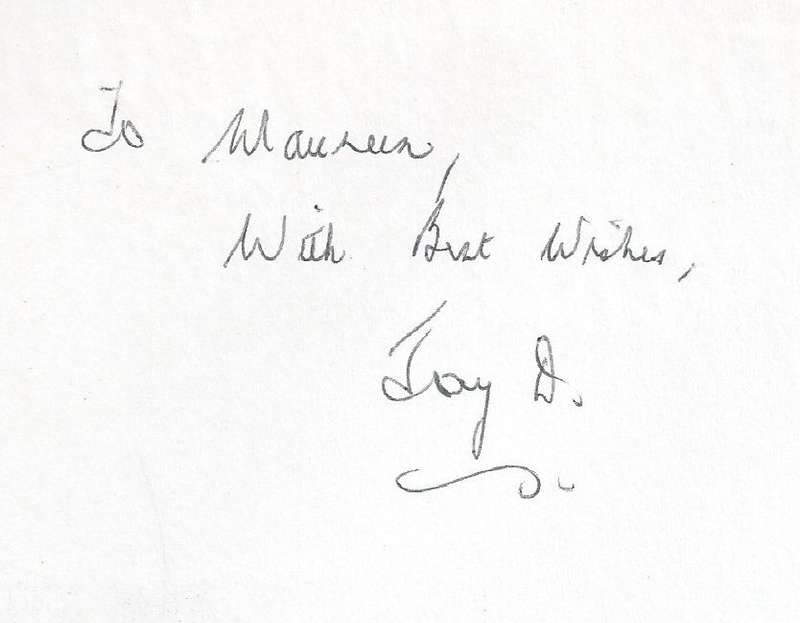 To Maureen,
With Best Wishes,
Joy D.